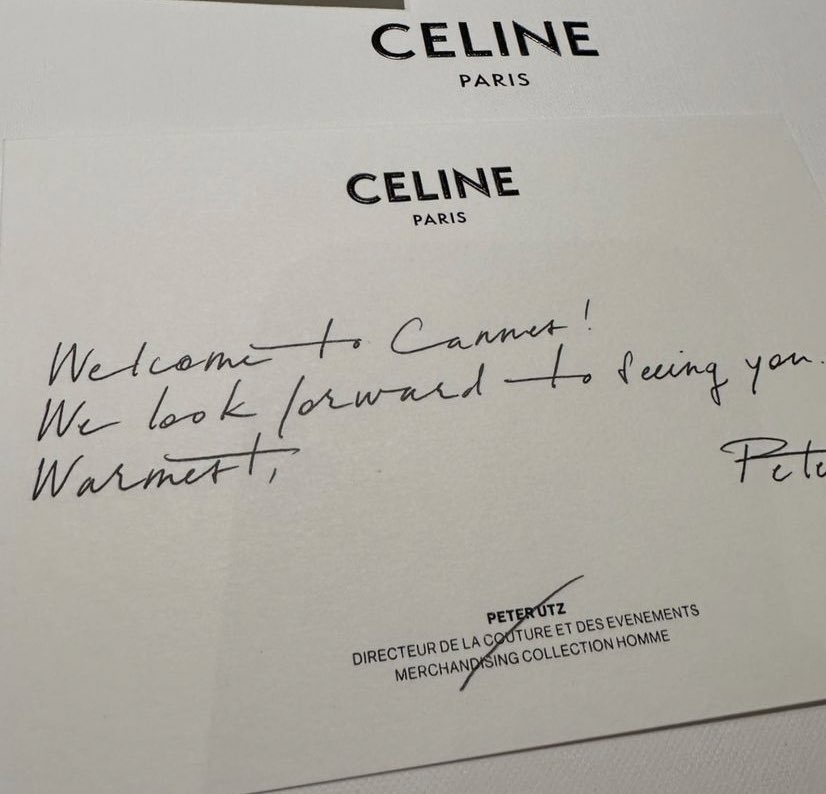 CELINE
PARIS
CELINE
PARIS
Welcome to Cannes!
We look forward to seeing you.
Warmest,
Pete
PETER UTZ
DIRECTEUR DE LA COUTURE ET DES EVENEMENTS
MERCHANDISING COLLECTION HOMME